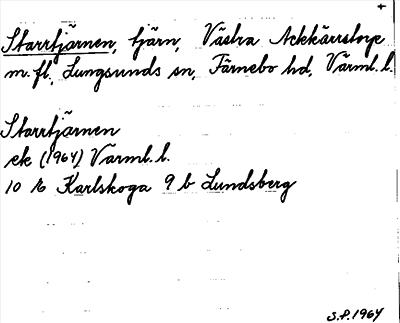 +
Starrtjärnen, tjärn, Västra Ackkärrstorp
m.fl., Lungsunds sn, Färnebo hd, Värml.l.
Starrtjärnen
ek (1964) Värml.l.
10 E Karlskoga 9 b Lundsberg
S.P. 1964